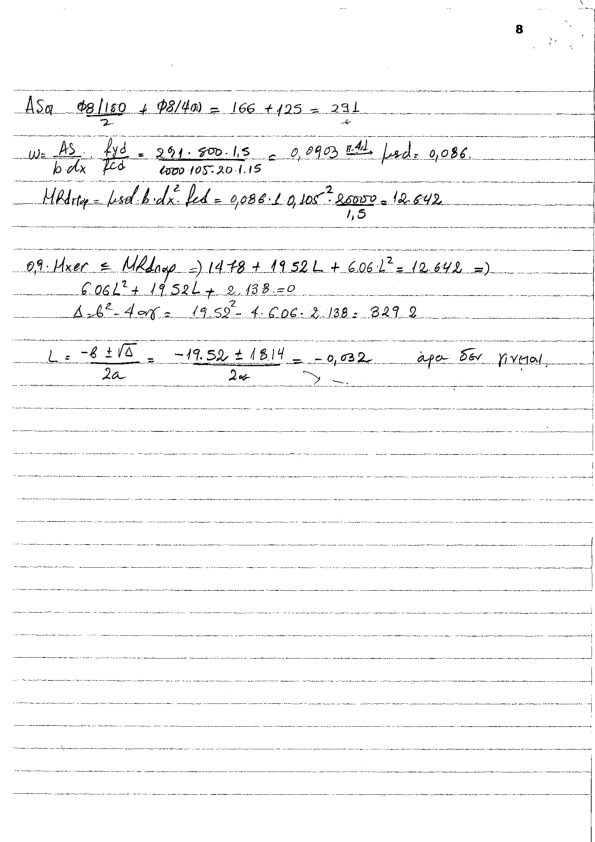 8
ASαπ Φ8/180/2 + Φ8/400 = 166 + 125 = 291
ω= AS/b·dx · fyd/fcd = 291·500·1,5/1000·105·20·1.15 = 0,0903 → μsd= 0,086.
MRdπαρ = μsd·b·dx²·fcd = 0,086·1·0,105²·20000/1,5 = 12.642
0,9·Mxer ≤ MRdπαρ =) 14.78 + 19.52L + 6.06·L² = 12.642 =)
6.06L² + 19.52L + 2.138=0
Δ=β²-4αγ = 19.52² - 4·6.06·2.138 = 329.2
L = -β ± √Δ/2α = -19.52 ± 18.14/2α = -0,032 άρα δεν γίνεται,